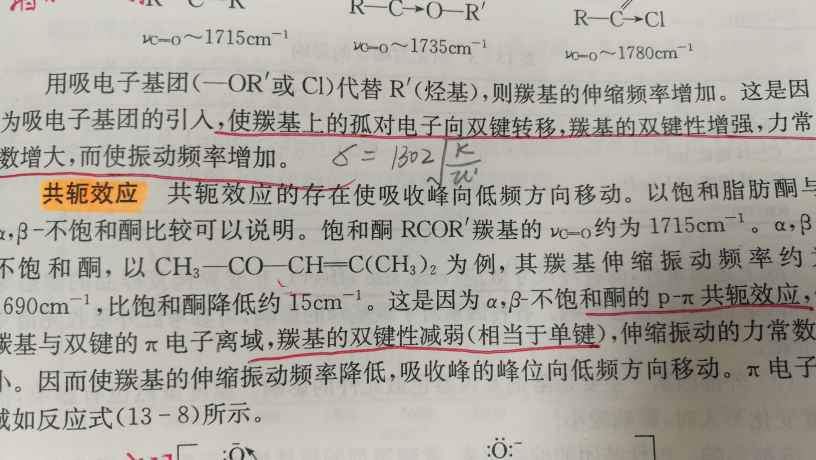 R—C→O—R′
R—C→Cl
νC=O～1715cm⁻¹ νC=O～1735cm⁻¹ νC=O～1780cm⁻¹
用吸电子基团(—OR′或 Cl)代替 R′(烃基),则羰基的伸缩频率增加。这是因
为吸电子基团的引入,使羰基上的孤对电子向双键转移,羰基的双键性增强,力常
数增大,而使振动频率增加。
共轭效应 共轭效应的存在使吸收峰向低频方向移动。以饱和脂肪酮与
α,β-不饱和酮比较可以说明。饱和酮 RCOR′羰基的 νC=O约为 1715cm⁻¹。α,β
不饱和酮,以 CH₃—CO—CH=C(CH₃)₂ 为例,其羰基伸缩振动频率约
1690cm⁻¹,比饱和酮降低约 15cm⁻¹。这是因为 α,β-不饱和酮的 p-π 共轭效应,
羰基与双键的 π 电子离域,羰基的双键性减弱(相当于单键),伸缩振动的力常数
小。因而使羰基的伸缩振动频率降低,吸收峰的峰位向低频方向移动。π 电子
域如反应式(13-8)所示。
:Ö:⁻